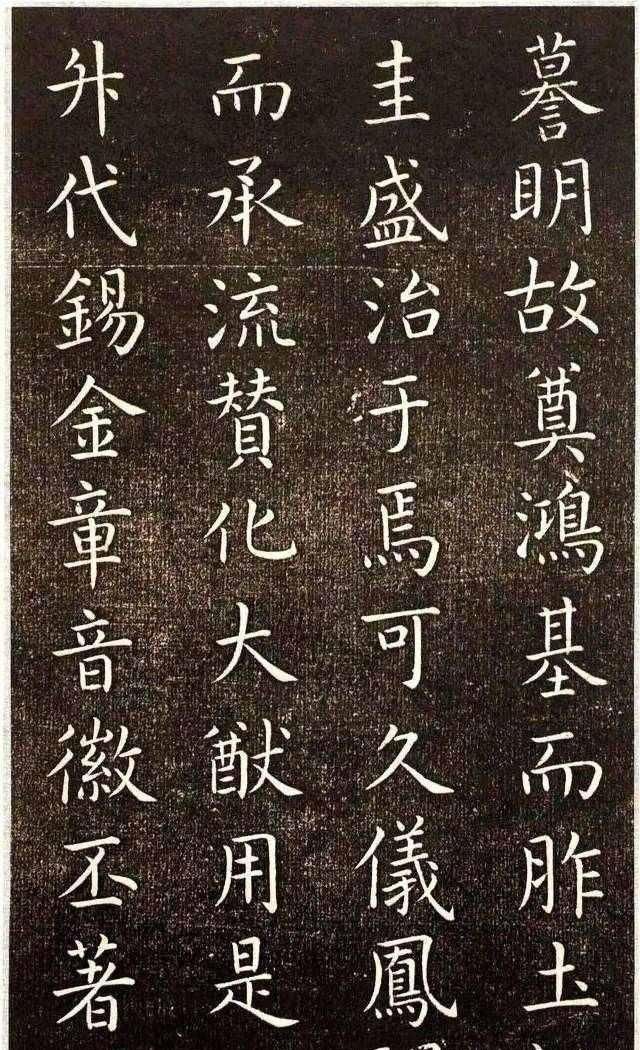 謩明故奠鴻基而胙土
圭盛治于焉可久儀鳳
而承流贊化大猷用是
升代錫金章音徽丕著